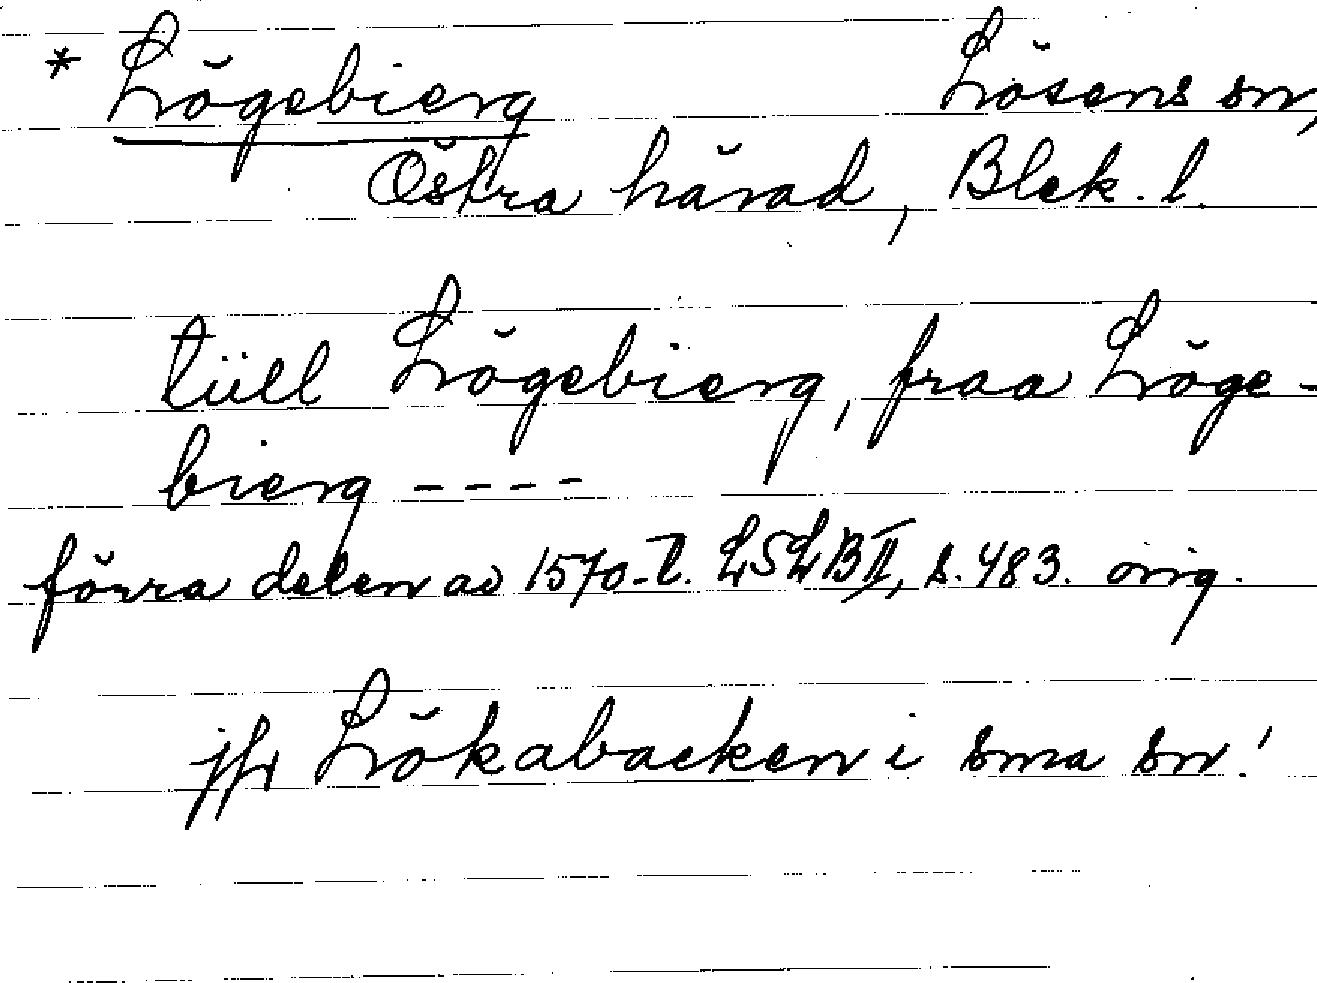 * Lögebierg Lösens sn,
Östra härad, Blek. l.
tüll Lögebierg, fraa Löge-
bierg ----
förra delen av 1570-t. LSLB II, s. 483. orig.
jfr Lökabacken i sma sn!